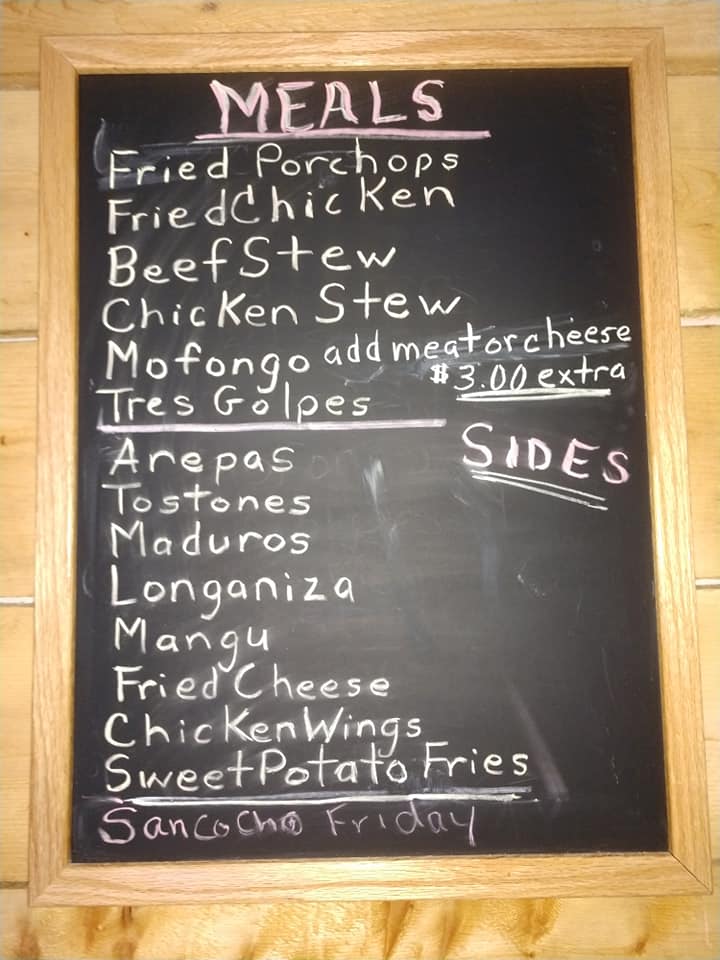 MEALS
Fried Porchops
Fried Chicken
Beef Stew
Chicken Stew
Mofongo add meat or cheese
$3.00 extra
Tres Golpes
SIDES
Arepas
Tostones
Maduros
Longaniza
Mangu
Fried Cheese
Chicken Wings
Sweet Potato Fries
Sancocho Friday